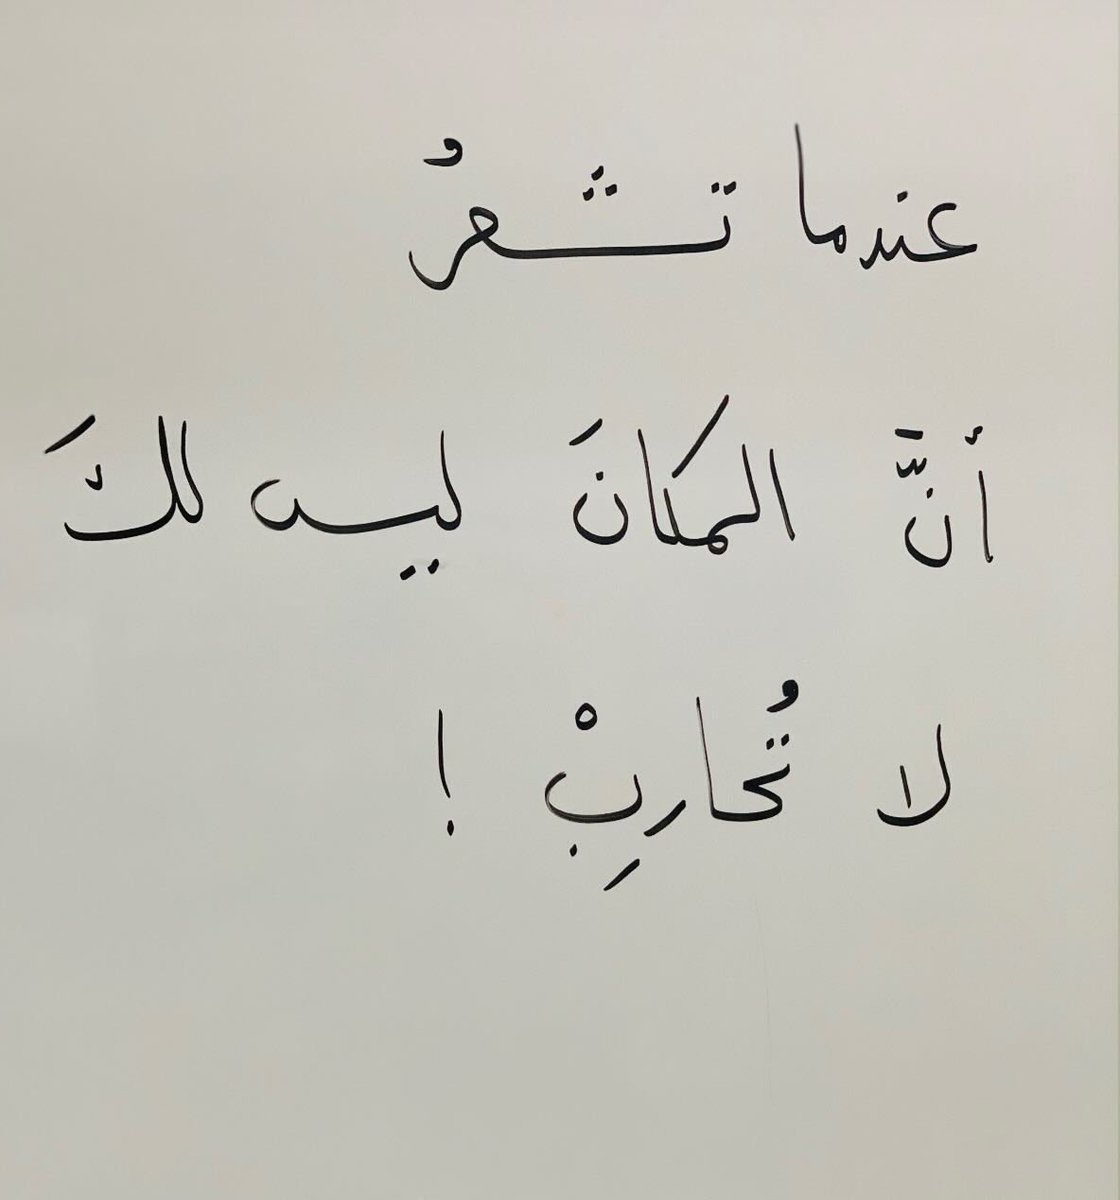 عندما تشعرُ
أنَّ المكانَ ليس لكَ
لا تُحارِبْ !